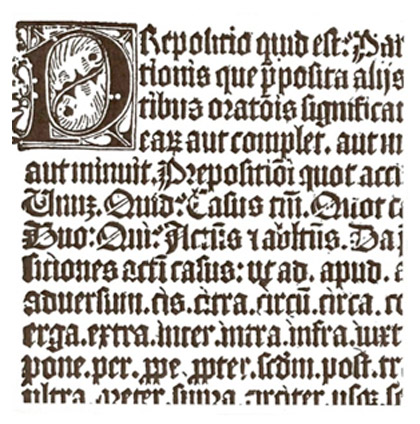 PRepositio quid est: Par
tionis que p̄posita alijs
tibuz oratōis significat
eaꝝ aut complet. aut m
aut minuit. Prepositiōi quot acci
Unuz. Quid: Casus tm̄. Quot c
Duo: Qui: Actūs ⁊ abltūs. Da p
sitiones acti casus: vt ad. apud. a
aduersum. cis. citra. circū. circa. co
erga. extra. inter. intra. infra. iuxt
pone. per. ꝓpe. ꝓpter. scḋm. post. tr
ultra. preter. supra. circiter. usqꝫ. se